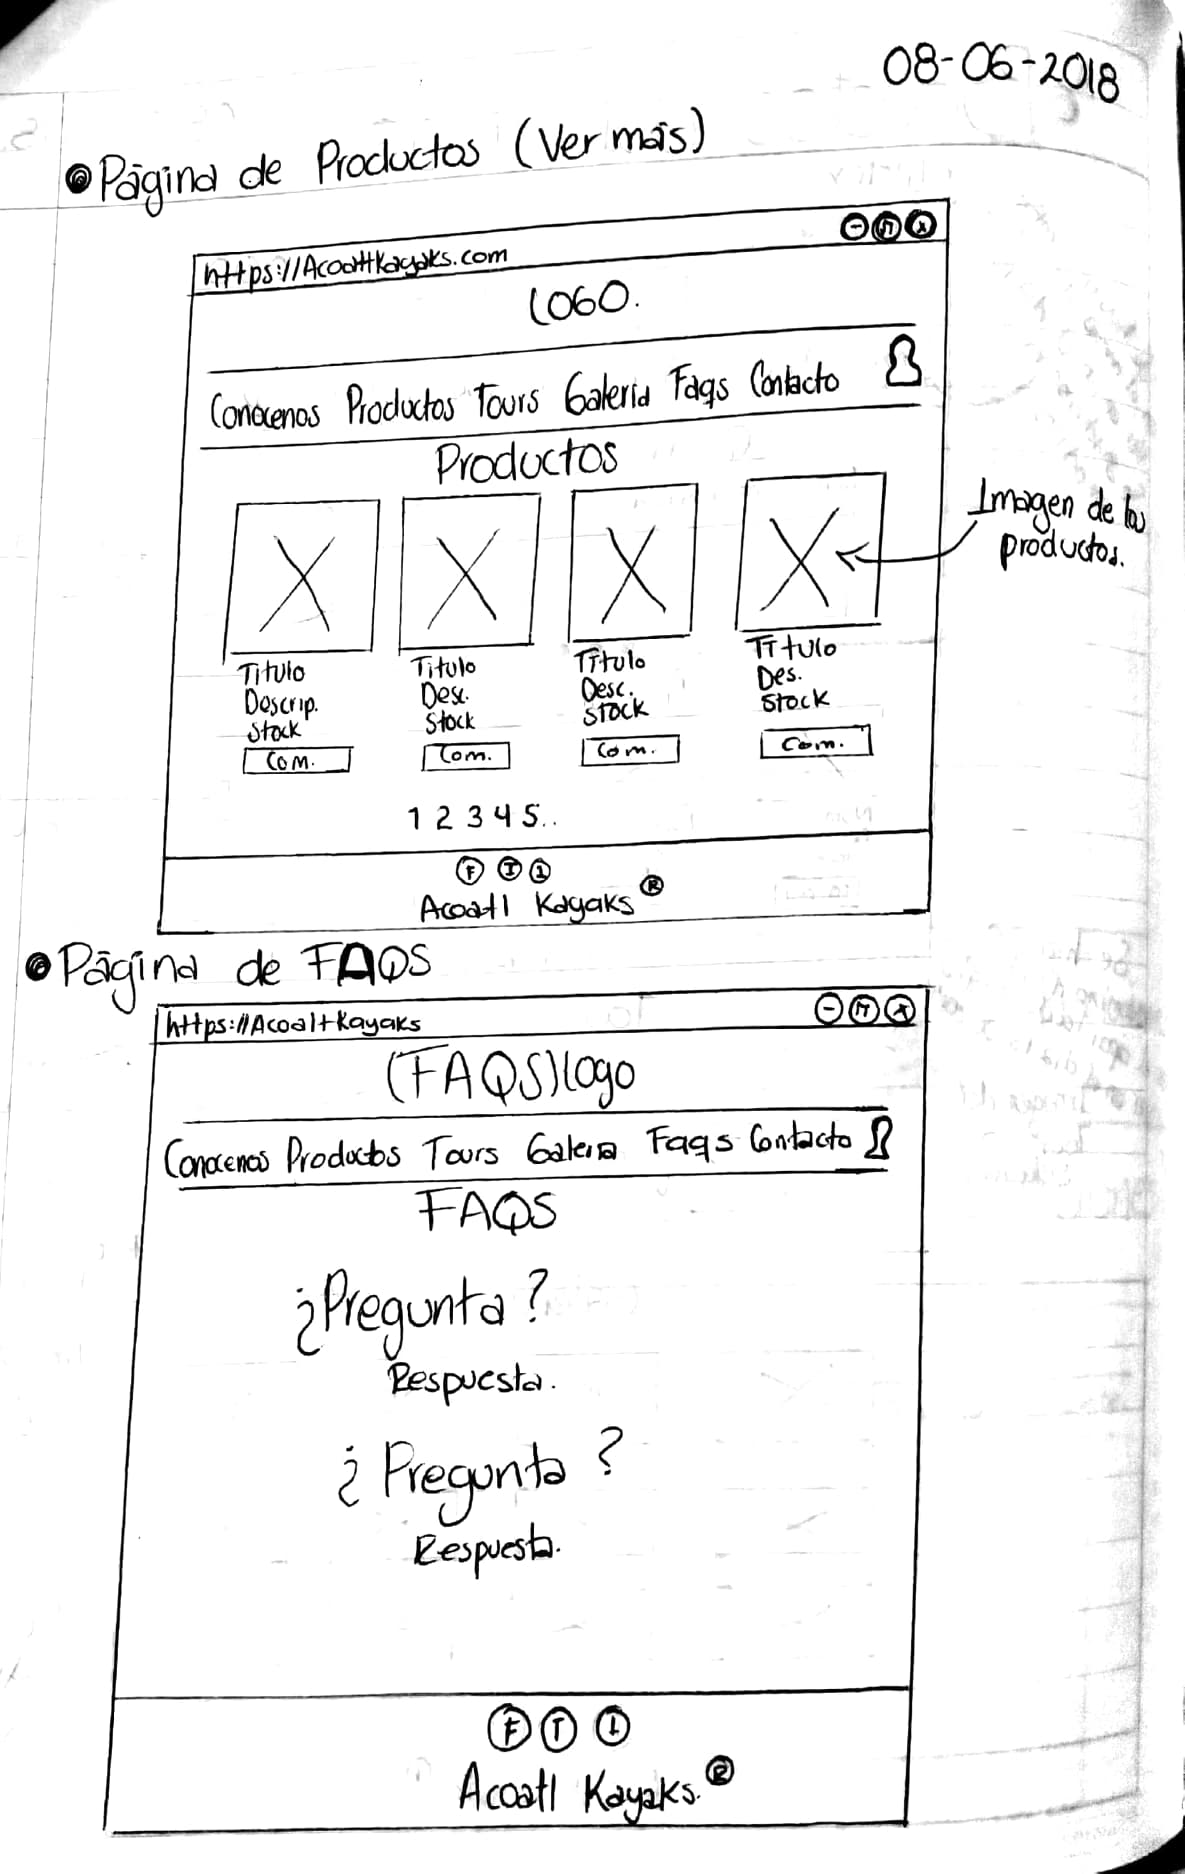 08-06-2018
Página de Productos (Ver más)
https://AcoatlKayaks.com
LOGO.
Conocenos Productos Tours Galeria Faqs Contacto
Productos
Imagen de los
productos.
Titulo Titulo Título Título
Descrip. Desc. Desc. Des.
Stock Stock Stock Stock
Com. Com. Com. Com.
1 2 3 4 5..
F T I
Acoatl Kayaks ®
Página de FAQS
https://Acoalt Kayaks
(FAQS) logo
Conocenos Productos Tours Galeria Faqs Contacto
FAQS
¿Pregunta?
Respuesta.
¿Pregunta?
Respuesta.
F T I
Acoatl Kayaks. ®